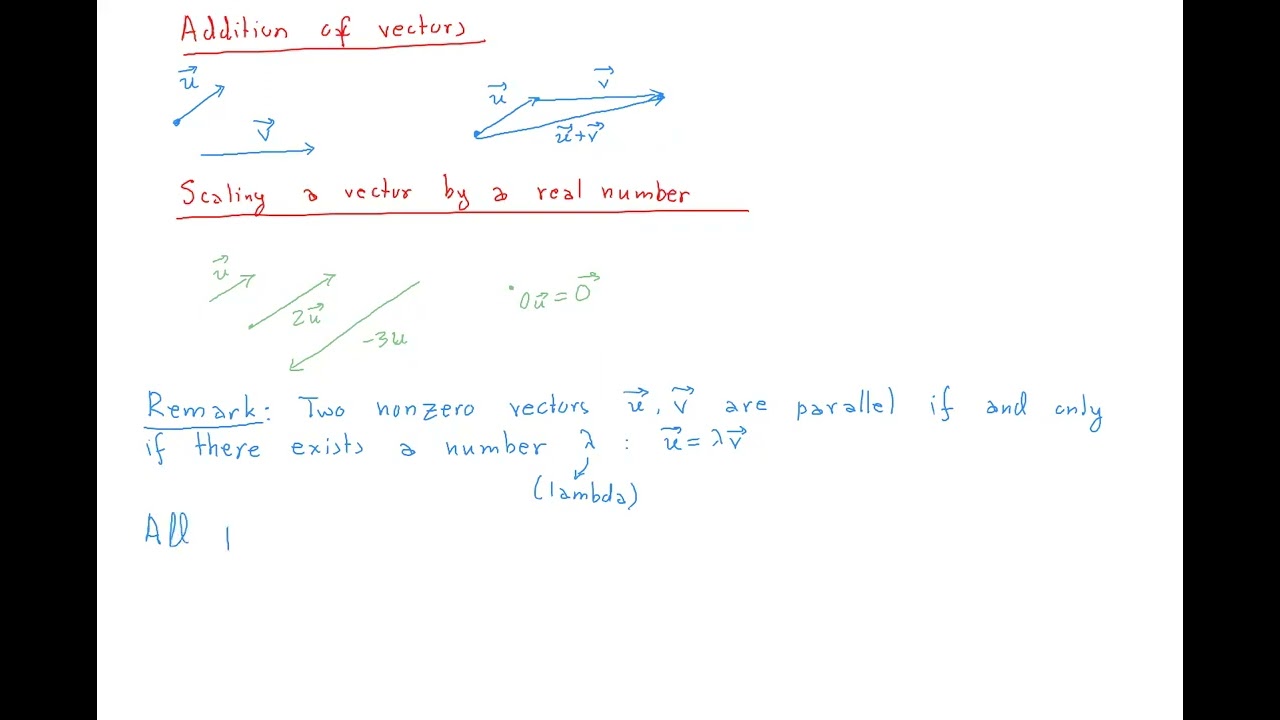 Addition of vectors
u⃗
v⃗
u⃗
v⃗
u⃗+v⃗
Scaling a vector by a real number
u⃗
2u⃗
-3u
0u⃗ = 0⃗
Remark: Two nonzero vectors u⃗, v⃗ are parallel if and only
if there exists a number λ : u⃗ = λv⃗
(lambda)
All